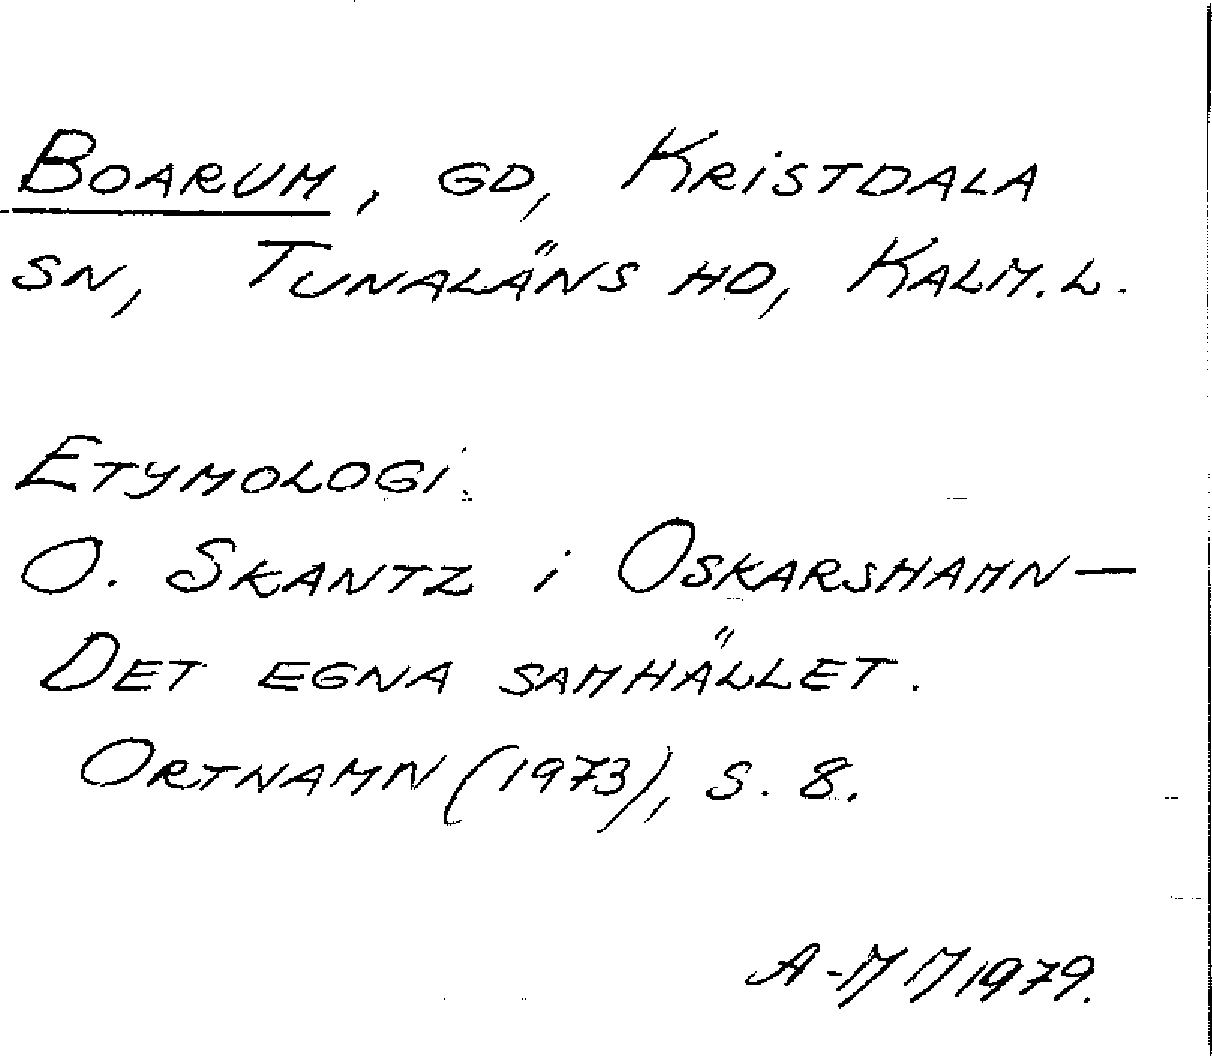 BOARUM, GD, KRISTDALA
SN, TUNALÄNS HD, KALM. L.
ETYMOLOGI.
O. SKANTZ i OSKARSHAMN –
DET EGNA SAMHÄLLET.
ORTNAMN (1973), S. 8.
A-M M 1979.